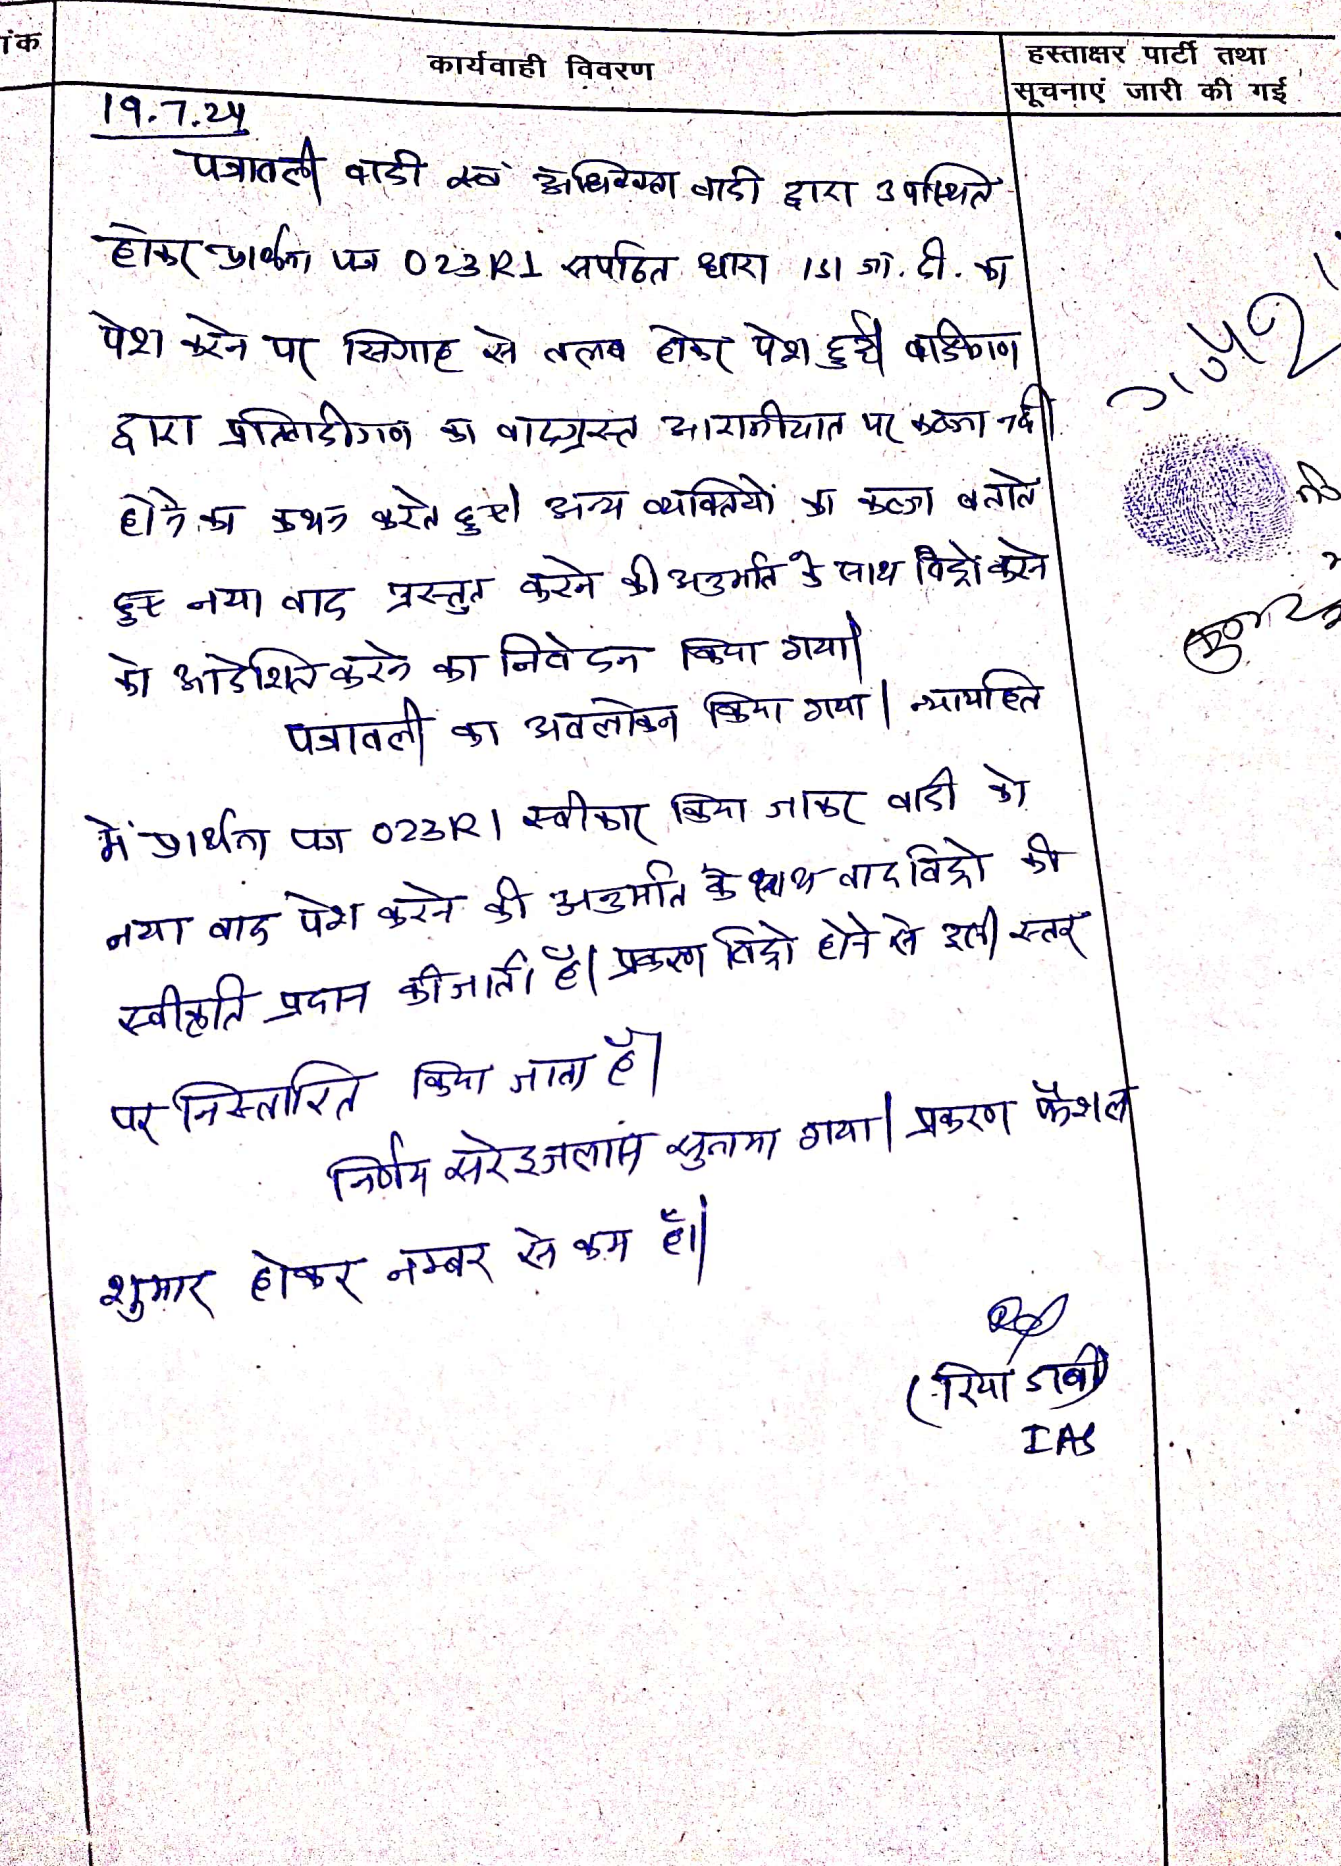 ांक
कार्यवाही विवरण
हस्ताक्षर पार्टी तथा
सूचनाएं जारी की गई
19.7.24
पत्रावली वादी एवं अधिवक्ता वादी द्वारा उपस्थित
होकर प्रार्थना पत्र O23R1 सपठित धारा 151 जा. दी. का
पेश करने पर सिगाह से तलब होकर पेश हुई। वादीगण
द्वारा प्रतिवादीगण का वादग्रस्त आराजीयात पर कब्जा नहीं
होने का कथन करते हुए अन्य व्यक्तियों का कब्जा बताते
हुए नया वाद प्रस्तुत करने की अनुमति के साथ विड्रो करने
को आदेशित करने का निवेदन किया गया।
पत्रावली का अवलोकन किया गया। न्यायहित
में प्रार्थना पत्र O23R1 स्वीकार किया जाकर वादी को
नया वाद पेश करने की अनुमति के साथ वाद विड्रो की
स्वीकृति प्रदान की जाती है। प्रकरण विड्रो होने से इसी स्तर
पर निस्तारित किया जाता है।
निर्णय सरे इजलास सुनाया गया। प्रकरण फैशल
शुमार होकर नम्बर से कम हो।
(रिया डाबी)
IAS